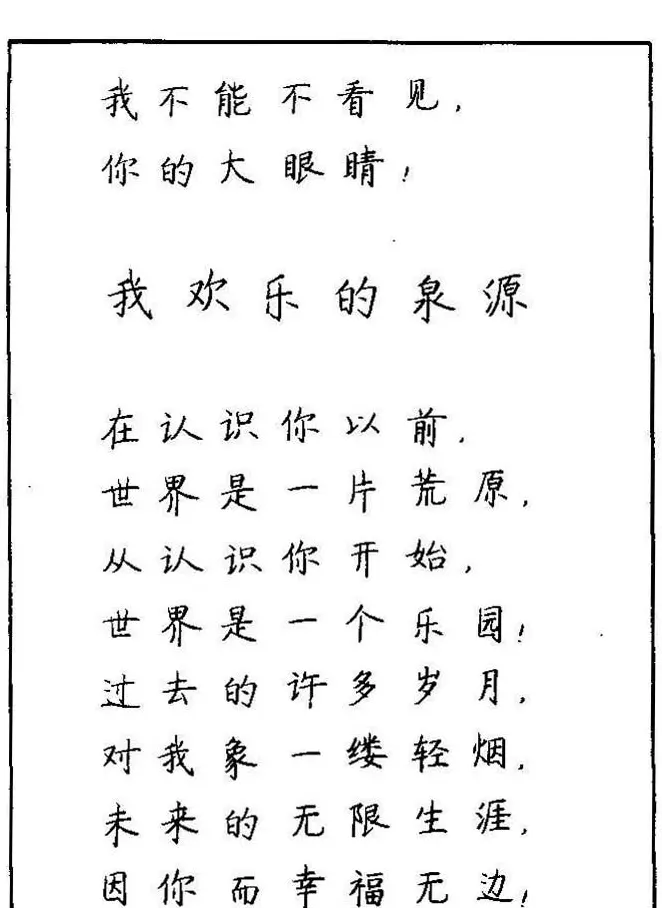 我不能不看见，
你的大眼睛！
我欢乐的泉源
在认识你以前，
世界是一片荒原，
从认识你开始，
世界是一个乐园！
过去的许多岁月，
对我象一缕轻烟，
未来的无限生涯，
因你而幸福无边！